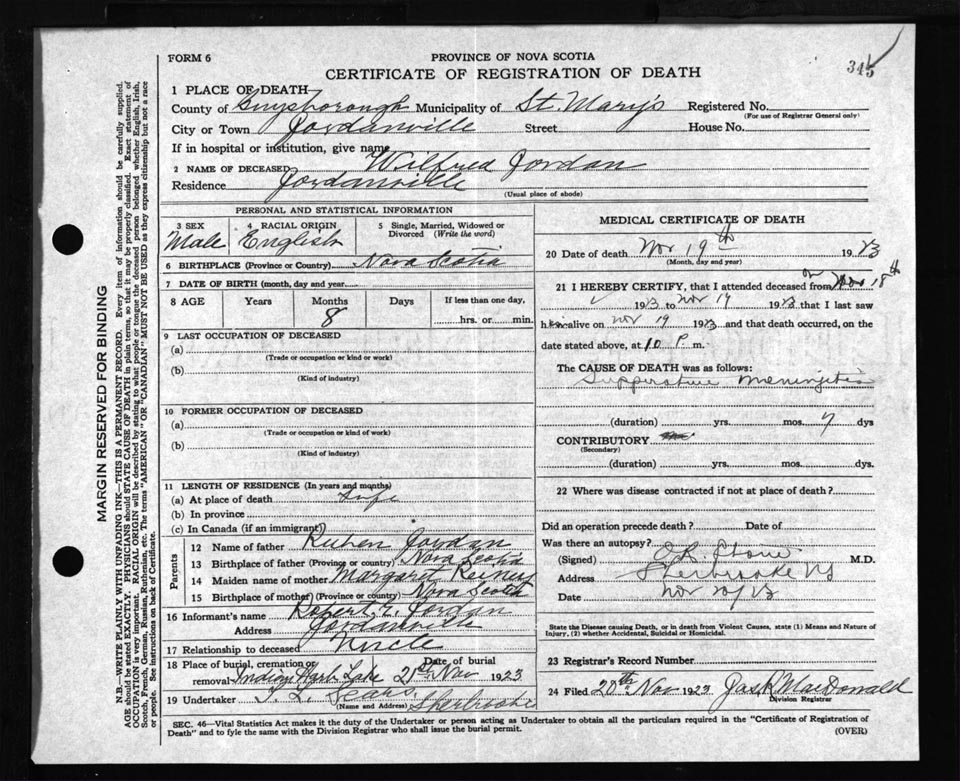 345
FORM 6
PROVINCE OF NOVA SCOTIA
CERTIFICATE OF REGISTRATION OF DEATH
1 PLACE OF DEATH
County of Guysborough Municipality of St. Mary's Registered No.
(For use of Registrar General only)
City or Town Jordanville Street House No.
If in hospital or institution, give name
2 NAME OF DECEASED Wilfred Jordan
Residence Jordanville
(Usual place of abode)
PERSONAL AND STATISTICAL INFORMATION
3 SEX 4 RACIAL ORIGIN 5 Single, Married, Widowed or
Divorced (Write the word)
Male English
6 BIRTHPLACE (Province or Country) Nova Scotia
7 DATE OF BIRTH (month, day and year)
8 AGE Years Months Days If less than one day,
8 hrs. or min.
9 LAST OCCUPATION OF DECEASED
(a)
(Trade or occupation or kind of work)
(b)
(Kind of industry)
10 FORMER OCCUPATION OF DECEASED
(a)
(Trade or occupation or kind of work)
(b)
(Kind of industry)
11 LENGTH OF RESIDENCE (In years and months)
(a) At place of death Life
(b) In province
(c) In Canada (if an immigrant)
Parents
12 Name of father Reuben Jordan
13 Birthplace of father (Province or country) Nova Scotia
14 Maiden name of mother Margaret
15 Birthplace of mother (Province or country) Nova Scotia
16 Informant's name Robert Jordan
Address Jordanville
17 Relationship to deceased Uncle
18 Place of burial, cremation or Date of burial
removal Indian Harb Lake 21st Nov 1923
19 Undertaker Sears Sherbrooke
(Name and Address)
MEDICAL CERTIFICATE OF DEATH
20 Date of death Nov 19th 1923
(Month, day and year)
21 I HEREBY CERTIFY, that I attended deceased from on Nov 18th
1923 to Nov 19 1923 that I last saw
him alive on Nov 19 1923 and that death occurred, on the
date stated above, at 10 P. m.
The CAUSE OF DEATH was as follows:
Suppurative Meningitis
(duration) yrs. mos. 7 dys
CONTRIBUTORY
(Secondary)
(duration) yrs. mos. dys.
22 Where was disease contracted if not at place of death?
Did an operation precede death? Date of
Was there an autopsy?
(Signed) M.D.
Address Sherbrooke NS
Date Nov 20/23
State the Disease causing Death, or in death from Violent Causes, state (1) Means and Nature of
Injury, (2) whether Accidental, Suicidal or Homicidal.
23 Registrar's Record Number
24 Filed 20th Nov 1923 Jas R MacDonald
Division Registrar
SEC. 46—Vital Statistics Act makes it the duty of the Undertaker or person acting as Undertaker to obtain all the particulars required in the "Certificate of Registration of
Death" and to fyle the same with the Division Registrar who shall issue the burial permit.
(OVER)
MARGIN RESERVED FOR BINDING
N.B.—WRITE PLAINLY WITH UNFADING INK—THIS IS A PERMANENT RECORD. Every item of information should be carefully supplied.
AGE should be stated EXACTLY. PHYSICIANS should STATE CAUSE OF DEATH in plain terms, so that it may be properly classified. Exact statement of
OCCUPATION is very important. RACIAL ORIGIN will be described by stating to what people or tongue the deceased person belonged whether English, Irish,
Scotch, French, German, Russian, Ruthenian, etc. The terms "AMERICAN" OR "CANADIAN" MUST NOT BE USED as they express citizenship but not a race
or people. See instructions on back of Certificate.